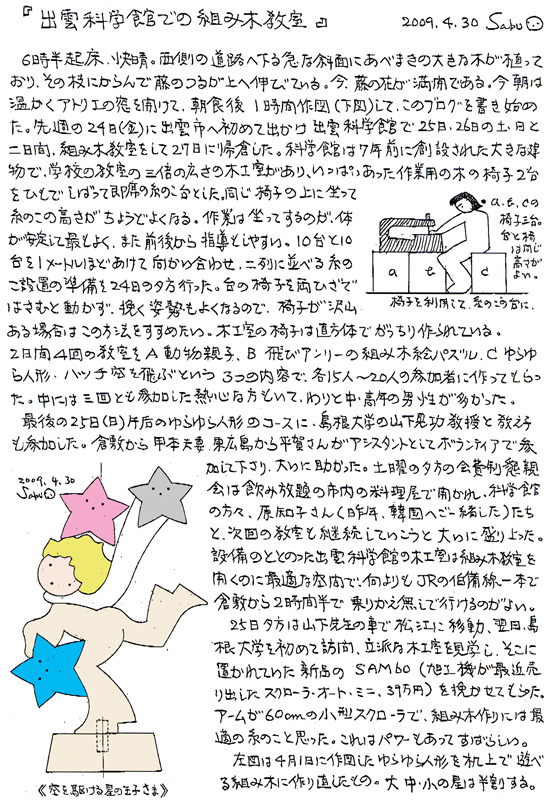 『出雲科学館での組み木教室』
2009.4.30 Sabu
6時半起床、快晴。西側の道路へ下る急な斜面にあべまきの大きな木が植って
おり、その枝にからんで藤のつるが上へ伸びている。今、藤の花が満開である。今朝は
温かくアトリエの窓を開けて、朝食後1時間作図(下図)して、このブログを書き始め
た。先週の24日(金)に出雲市へ初めて出かけ出雲科学館で25日、26日の土・日と
二日間、組み木教室をして27日に帰倉した。科学館は7年前に創設された大きな建
物で、学校の教室の三倍の広さの木工室があり、いっぱいあった作業用の木の椅子2台
をひもでしばって即席の糸のこ台とした。同じ椅子の上に坐って
糸のこの高さがちょうどよくなる。作業は坐ってするのが、体
が安定して最もよく、また前後から指導もしやすい。10台と10
台を1メートルほどあけて向かい合わせ、二列に並べる糸の
こ設置の準備を24日の夕方行った。台の椅子を両ひざで
はさむと動かず、挽く姿勢もよくなるので、椅子が沢山
ある場合はこの方法をすすめたい。木工室の椅子は直方体でがっちり作られている。
2日間4回の教室をA動物親子、B飛びアンリーの組み木絵パズル、Cゆらゆ
ら人形・ハッチ空を飛ぶという3つの内容で、各15人〜20人の参加者に作ってもらっ
た。中には三回とも参加した熱心な方もいて、わりと中・高年の男性が多かった。
最後の25日(日)午后のゆらゆら人形のコースに、島根大学の山下晃功教授と教え子
も参加した。倉敷から甲本夫妻、東広島から平賀さんがアシスタントとしてボランティアで参
加して下さり、大いに助かった。土曜の夕方の会費制懇親
会は飲み放題の市内の料理屋で開かれ、科学館
の方々、原知子さん(昨年、韓国へご一緒した)たち
と、次回の教室も継続していこうと大いに盛り上った。
設備のととのった出雲科学館の木工室は組み木教室を
開くのに最適な空間で、何よりもJRの伯備線一本で
倉敷から2時間半で乗りかえ無しで行けるのがよい。
25日夕方は山下先生の車で松江に移動、翌日、島
根大学を初めて訪問、立派な木工室を見学し、そこに
置かれていた新品のSAM60(旭工機が最近売
り出したスクローラ・オート・ミニ、39万円)を挽かせてもらった。
アームが60cmの小型スクローラで、組み木作りには最
適の糸のこと思った。これはパワーもあってすばらしい。
左図は4月1日に作図したゆらゆら人形を机上で遊べ
る組み木に作り直したもの。大中・小の星は半割する。
a.b.cの
椅子三台。
台と椅
は同じ
高さが
よい。
a
b
c
椅子を利用して、糸のこ台に。
2009.4.30
Sabu
《空を駆ける星の王子さま》